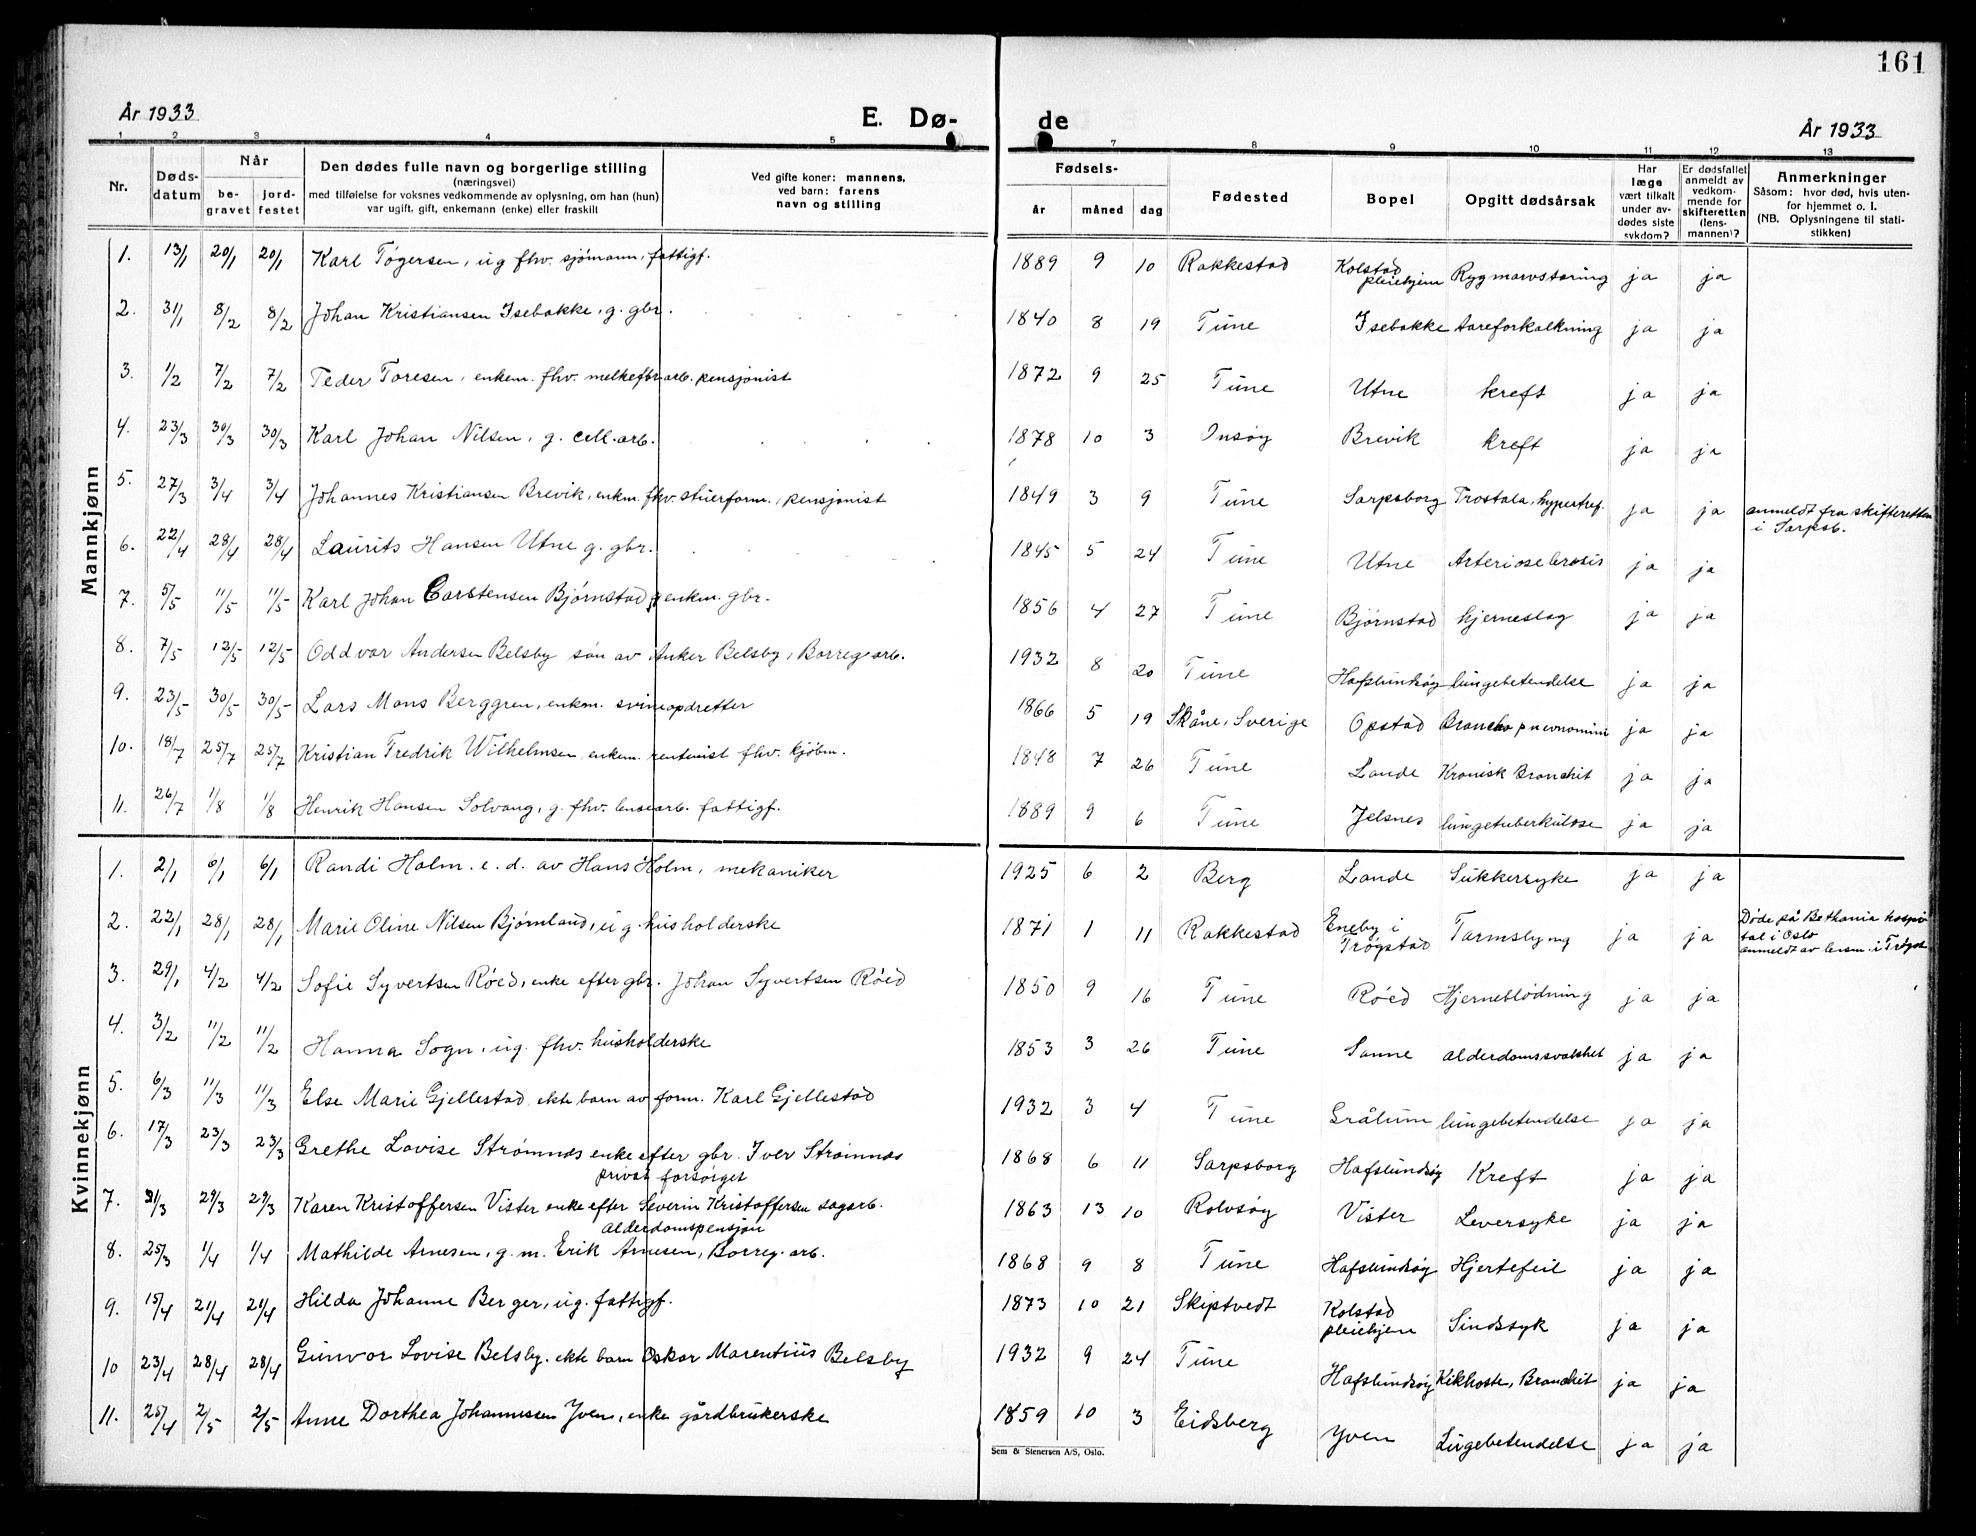 161
År 1933 E. Dø- de År 1933
1 2 3 4 5 7 8 9 10 11 12 13
Nr. Døds-datum Når be-gravet jord-festet Den dødes fulle navn og borgerlige stilling (næringsvei) med tilføielse for voksnes vedkommende av oplysning, om han (hun) var ugift, gift, enkemann (enke) eller fraskilt Ved gifte koner: mannens, ved barn: farens navn og stilling Fødsels- år måned dag Fødested Bopel Opgitt dødsårsak Har læge vært tilkalt under av-dødes siste sykdom? Er dødsfallet anmeldt av vedkom-mende for skifteretten (lens-mannen)? Anmerkninger Såsom: hvor død, hvis uten-for hjemmet o. l. (NB. Oplysningene til stati-stikken)
Mannkjønn
1. 13/1 20/1 20/1 Karl Tøgersen, ug fhv. sjømann, fattigf. 1889 9 10 Rakkestad Kolstad pleiehjem Rygmarvstæring ja ja
2. 31/1 8/2 8/2 Johan Kristiansen Isebakke, g. gbr. 1840 8 19 Tune Isebakke Aareforkalkning ja ja
3. 1/2 7/2 7/2 Peder Toresen, enkem. fhv. melkefbr.arb. pensjonist 1872 9 25 Tune Utne kreft ja ja
4. 23/3 30/3 30/3 Karl Johan Nilsen, g. cell.arb. 1878 10 3 Onsøy Brevik kreft ja ja
5. 27/3 3/4 3/4 Johannes Kristiansen Brevik, enkm. fhv. stuerform., pensjonist 1849 3 9 Tune Sarpsborg Prostata, hypertref. ja ja anmeldt fra skifteretten i Sarpsb.
6. 22/4 28/4 28/4 Laurits Hansen Utne g. gbr. 1845 5 24 Tune Utne Arteriosclerosis ja ja
7. 5/5 11/5 11/5 Karl Johan Carstensen Bjørnstad, enkm. gbr. 1856 4 27 Tune Bjørnstad hjerneslag ja ja
8. 7/5 12/5 12/5 Oddvar Andersen Belsby søn av Anker Belsby, Borreg.arb. 1932 8 20 Tune Hafslundsøy lungebetendelse ja ja
9. 23/5 30/5 30/5 Lars Mons Berggren, enkm. svineopdretter 1866 5 19 Skåne, Sverige Opstad Broncho pneunomini ja ja
10. 18/7 25/7 25/7 Kristian Fredrik Wilhelmsen enkem. rentenist fhv. kjøbm. 1848 7 26 Tune Lande Kronisk Bronchit ja ja
11. 26/7 1/8 1/8 Henrik Hansen Solvang, g. fhv. lensearb. fattigf. 1889 9 6 Tune Jelsnes lungetuberkulose ja ja
Kvinnekjønn
1. 2/1 6/1 6/1 Randi Holm. e. d. av Hans Holm, mekaniker 1925 6 2 Berg Lande Sukkersyke ja ja
2. 22/1 28/1 28/1 Marie Oline Nilsen Bjørnland, ug. husholderske 1871 1 11 Rakkestad Eneby i Trøgstad Tarmslyng ja ja Døde på Bethania hospital i Oslo anmeldt av lensm. i Trøgst
3. 29/1 4/2 4/2 Sofie Syvertsen Røed, enke efter gbr. Johan Syvertsen Røed 1850 9 16 Tune Røed Hjerneblødning ja ja
4. 3/2 11/2 11/2 Hanna Sogn, ug. fhv. husholderske 1853 3 26 Tune Sanne alderdomssvakhet ja ja
5. 6/3 11/3 11/3 Else Marie Gjellestad ekte barn av form. Karl Gjellestad 1932 3 4 Tune Grålum lungebetendelse ja ja
6. 17/3 23/3 23/3 Grethe Lovise Strømnæs enke efter gbr. Iver Strømnæs privat forsørget 1868 6 11 Sarpsborg Hafslundsøy Kreft ja ja
7. 21/3 29/3 29/3 Karen Kristoffersen Vister enke efter Severin Kristoffersen sagarb. alderdomspensjon 1863 13 10 Rolvsøy Vister Leversyke ja ja
8. 25/3 1/4 1/4 Mathilde Arnesen, g. m. Erik Arnesen, Borreg. arb. 1868 9 8 Tune Hafslundsøy Hjertefeil ja ja
9. 15/4 21/4 21/4 Hilda Johanne Berger, ug. fattigf. 1873 10 21 Skiptvedt Kolstad pleiehjem Sindssyk ja ja
10 23/4 28/4 28/4 Gunvor Lovise Belsby. ekte barn Oskar Marentius Belsby 1932 9 24 Tune Hafslundsøy Kikhoste, Bronchit ja ja
11. 25/4 2/5 2/5 Anne Dorthea Johannessen Yven, enke gårdbrukerske 1859 10 3 Eidsberg Yven Lugebetendelse ja ja
Sem & Stenersen A/S, Oslo.